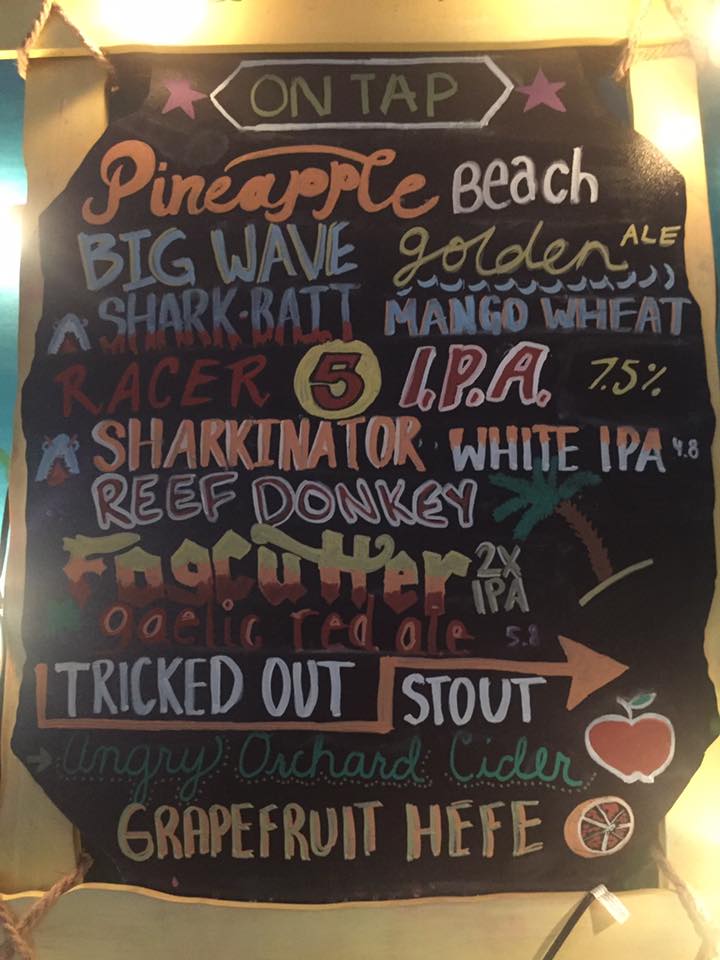 ON TAP
Pineapple Beach
BIG WAVE golden ALE
SHARK·BAIT MANGO WHEAT
RACER 5 I.P.A. 7.5%
SHARKINATOR WHITE IPA 4.8
REEF DONKEY
Fogcutter 2X IPA
gaelic red ale 5.8
TRICKED OUT STOUT
Angry Orchard Cider
GRAPEFRUIT HEFE